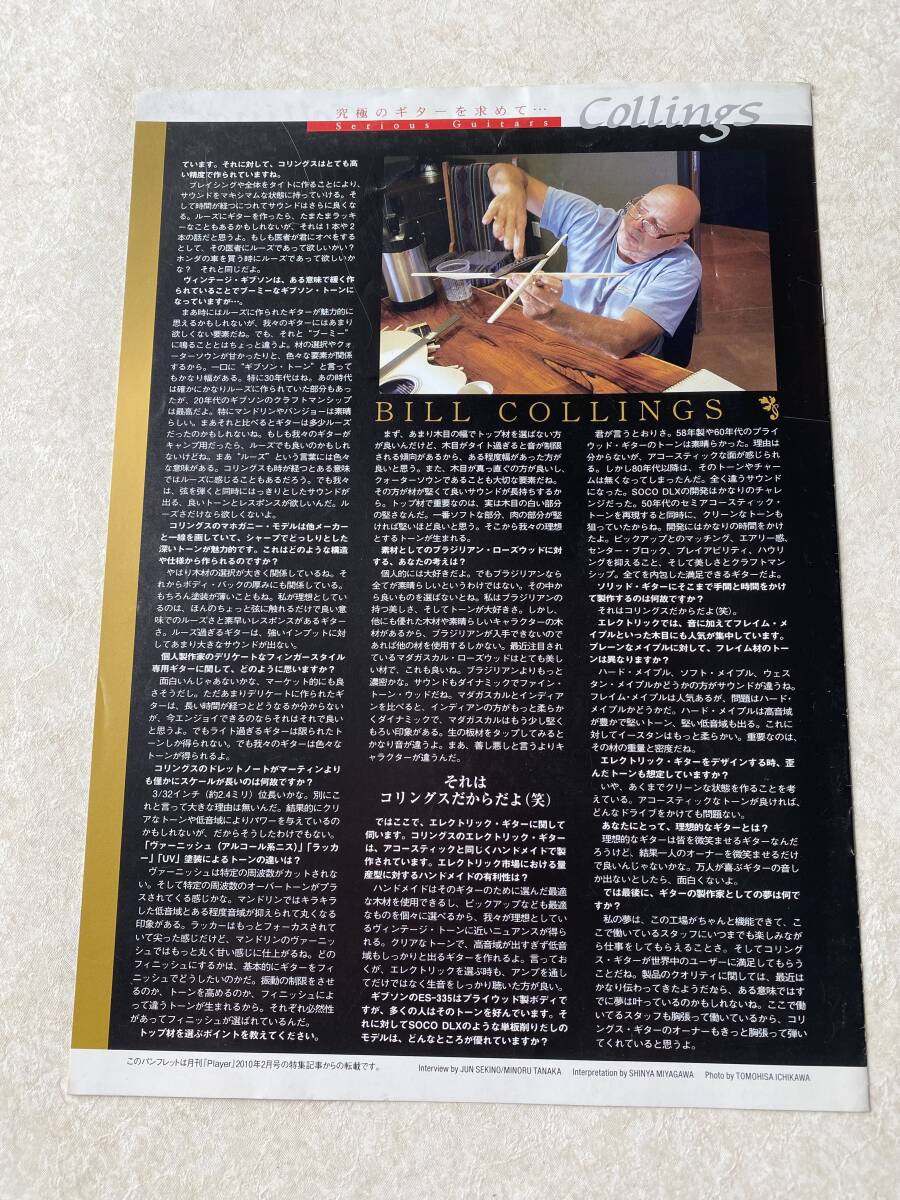 究極のギターを求めて…
Serious Guitars
Collings
ています。それに対して、コリングスはとても高
い精度で作られていますね。
ブレイシングや全体をタイトに作ることにより、
サウンドをマキシマムな状態に持っていける。そ
して時間が経つにつれてサウンドはさらに良くな
る。ルーズにギターを作ったら、たまたまラッキ
ーなこともあるかもしれないが、それは1本や2
本の話だと思うよ。もしも医者が君にオペをする
として、その医者にルーズであって欲しいかい?
ホンダの車を買う時にルーズであって欲しいか
な? それと同じだよ。
ヴィンテージ・ギブソンは、ある意味で緩く作
られていることでブーミーなギブソン・トーンに
なっていますが…。
まあ時にはルーズに作られたギターが魅力的に
思えるかもしれないが、我々のギターにはあまり
欲しくない要素だね。でも、それと“ブーミー”
に鳴ることとはちょっと違うよ。材の選択やクォ
ーターソウンが甘かったりと、色々な要素が関係
するから。一口に“ギブソン・トーン”と言って
もかなり幅がある。特に30年代はね。あの時代
は確かにかなりルーズに作られていた部分もあっ
たが、20年代のギブソンのクラフトマンシップ
は最高だよ。特にマンドリンやバンジョーは素晴
らしい。まあそれと比べるとギターは多少ルーズ
だったのかもしれないね。もしも我々のギターが
キャンプ用だったら、ルーズでも良いのかもしれ
ないけどね。まあ“ルーズ”という言葉には色々
な意味がある。コリングスも時が経つとある意味
ではルーズに感じることもあるだろう。でも我々
は、弦を弾くと同時にはっきりとしたサウンドが
出る、良いトーンとレスポンスが欲しいんだ。ル
ーズさだけなら欲しくないよ。
コリングスのマホガニー・モデルは他メーカー
と一線を画していて、シャープでどっしりとした
深いトーンが魅力的です。これはどのような構造
や仕様から作られるのですか?
やはり木材の選択が大きく関係しているね。そ
れからボディ・バックの厚みにも関係している。
もちろん塗装が薄いこともね。私が理想としてい
るのは、ほんのちょっと弦に触れるだけで良い意
味でのルーズさと素早いレスポンスがあるギター
さ。ルーズ過ぎるギターは、強いインプットに対
してあまり大きなサウンドが出ない。
個人製作家のデリケートなフィンガースタイル
専用ギターに関して、どのように思いますか?
面白いんじゃあないかな、マーケット的にも良
さそうだし。ただあまりデリケートに作られたギ
ターは、長い時間が経つとどうなるか分からない
が、今エンジョイできるのならそれはそれで良い
と思うよ。でもライト過ぎるギターは限られたト
ーンしか得られない。でも我々のギターは色々な
トーンが得られるよ。
コリングスのドレットノートがマーティンより
も僅かにスケールが長いのは何故ですか?
3/32インチ(約2.4ミリ)位長いかな。別にこ
れと言って大きな理由は無いんだ。結果的にクリ
アなトーンや低音域によりパワーを与えているの
かもしれないが、だからそうしたわけでもない。
「ヴァーニッシュ(アルコール系ニス)」「ラッカ
ー」「UV」塗装によるトーンの違いは?
ヴァーニッシュは特定の周波数がカットされな
い。そして特定の周波数のオーバートーンがプラ
スされてくる感じかな。マンドリンではキラキラ
した低音域とある程度音域が抑えられて丸くなる
印象がある。ラッカーはもっとフォーカスされて
いて尖った感じだけど、マンドリンのヴァーニッ
シュではもっと丸く甘い感じに仕上がるね。どの
フィニッシュにするかは、基本的にギターをフィ
ニッシュでどうしたいのかだ。振動の制限をさせ
るのか、トーンを高めるのか、フィニッシュによ
って違うトーンが生まれるから。それぞれ必然性
があってフィニッシュが選ばれているんだ。
トップ材を選ぶポイントを教えてください。
BILL COLLINGS
まず、あまり木目の幅でトップ材を選ばない方
が良いんだけど、木目がタイト過ぎると音が制限
される傾向があるから、ある程度幅があった方が
良いと思う。また、木目が真っ直ぐの方が良いし、
クォーターソウンであることも大切な要素だね。
その方が材が堅くて良いサウンドが長持ちするか
ら。トップ材で重要なのは、実は木目の白い部分
の堅さなんだ。一番ソフトな部分、肉の部分が堅
ければ堅いほど良いと思う。そこから我々の理想
とするトーンが生まれる。
素材としてのブラジリアン・ローズウッドに対
する、あなたの考えは?
個人的には大好きだよ。でもブラジリアンなら
全てが素晴らしいというわけではない。その中か
ら良いものを選ばないとね。私はブラジリアンの
持つ美しさ、そしてトーンが大好きさ。しかし、
他にも優れた木材や素晴らしいキャラクターの木
材があるから、ブラジリアンが入手できないので
あれば他の材を使用するしかない。最近注目され
ているマダガスカル・ローズウッドはとても美し
い材で、これも良いね。ブラジリアンよりもっと
濃密かな。サウンドもダイナミックでファイン・
トーン・ウッドだね。マダガスカルとインディア
ンを比べると、インディアンの方がもっと柔らか
くダイナミックで、マダガスカルはもう少し堅く
もろい印象がある。生の板材をタップしてみると
かなり音が違うよ。まあ、善し悪しと言うよりキ
ャラクターが違うんだ。
それは
コリングスだからだよ(笑)
ではここで、エレクトリック・ギターに関して
伺います。コリングスのエレクトリック・ギター
は、アコースティックと同じくハンドメイドで製
作されています。エレクトリック市場における量
産型に対するハンドメイドの有利性は?
ハンドメイドはそのギターのために選んだ最適
な木材を使用できるし、ピックアップなども最適
なものを個々に選べるから、我々が理想としてい
るヴィンテージ・トーンに近いニュアンスが得ら
れる。クリアなトーンで、高音域が出すぎず低音
域もしっかりと出るギターを作れるよ。言ってお
くが、エレクトリックを選ぶ時も、アンプを通し
てだけではなく生音をしっかり聴いた方が良い。
ギブソンのES-335はプライウッド製ボディで
すが、多くの人はそのトーンを好んでいます。そ
れに対してSOCO DLXのような単板削りだしの
モデルは、どんなところが優れていますか?
君が言うとおりさ。58年製や60年代のプライ
ウッド・ギターのトーンは素晴らかった。理由は
分からないが、アコースティックな面が感じられ
る。しかし80年代以降は、そのトーンやチャー
ムは無くなってしまったんだ。全く違うサウンド
になった。SOCO DLXの開発はかなりのチャレ
ンジだった。50年代のセミアコースティック・
トーンを再現すると同時に、クリーンなトーンも
狙っていたからね。開発にはかなりの時間をかけ
たよ。ピックアップとのマッチング、エアリー感、
センター・ブロック、プレイアビリティ、ハウリ
ングを抑えること、そして美しさとクラフトマン
シップ。全てを内包した満足できるギターだよ。
ソリッド・ギターにそこまで手間と時間をかけ
て製作するのは何故ですか?
それはコリングスだからだよ(笑)。
エレクトリックでは、音に加えてフレイム・メ
イプルといった木目にも人気が集中しています。
プレーンなメイプルに対して、フレイム材のトー
ンは異なりますか?
ハード・メイプル、ソフト・メイプル、ウェス
タン・メイプルかどうかの方がサウンドが違うね。
フレイム・メイプルは人気あるが、問題はハード・
メイプルかどうかだ。ハード・メイプルは高音域
が豊かで堅いトーン、堅い低音域も出る。これに
対してイースタンはもっと柔らかい。重要なのは、
その材の重量と密度だね。
エレクトリック・ギターをデザインする時、歪
んだトーンも想定していますか?
いや、あくまでクリーンな状態を作ることを考
えている。アコースティックなトーンが良ければ、
どんなドライブをかけても問題ない。
あなたにとって、理想的なギターとは?
理想的なギターは皆を微笑ませるギターなんだ
ろうけど、結果一人のオーナーを微笑ませるだけ
で良いんじゃないかな。万人が喜ぶギターの音し
か出ないとしたら、面白くないよ。
では最後に、ギターの製作家としての夢は何で
すか?
私の夢は、この工場がちゃんと機能できて、こ
こで働いているスタッフにいつまでも楽しみなが
ら仕事をしてもらえることさ。そしてコリング
ス・ギターが世界中のユーザーに満足してもらう
ことだね。製品のクオリティに関しては、最近は
かなり伝わってきたようだなら、ある意味ではす
でに夢は叶っているのかもしれないね。ここで働
いてるスタッフも胸張って働いているから、コリ
ングス・ギターのオーナーもきっと胸張って弾い
てくれていると思うよ。
このパンフレットは月刊『Player』2010年2月号の特集記事からの転載です。
Interview by JUN SEKINO/MINORU TANAKA Interpretation by SHINYA MIYAGAWA Photo by TOMOHISA ICHIKAWA